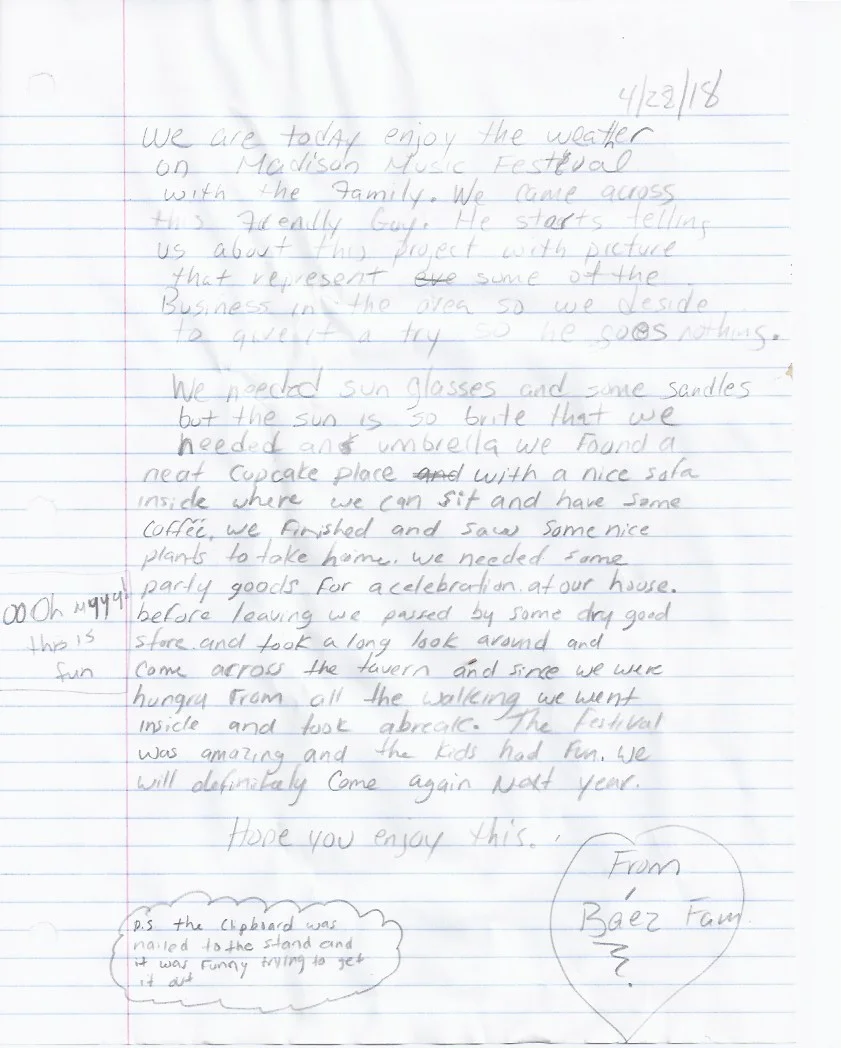 4/28/18
We are today enjoy the weather
on Madison Music Festival
with the Family. We came across
this Friendly Guy. He starts telling
us about this project with picture
that represent eve some of the
Business in the area so we deside
to give it a try so he goes nothing.
We needed sun glasses and some sandles
but the sun is so brite that we
needed an umbrella we Found a
neat Cupcake place and with a nice sofa
inside where we can sit and have some
coffee. we Finished and saw some nice
plants to take home. we needed some
party goods For a celebration. at our house.
OO Oh Myyy!
this is
fun
before leaving we passed by some dry good
store and took a long look around and
Come across the tavern and since we were
hungry From all the walking we went
inside and took abreak. The Festival
was amazing and the Kids had Fun. We
will definitely Come again Next year.
Hope you enjoy this..
From
Báez Fam
P.S. the Clipboard was
nailed to the stand and
it was Funny trying to get
it out